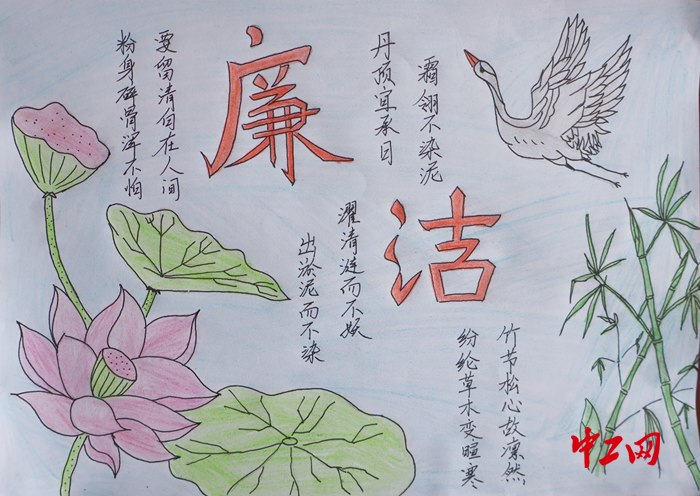 廉
洁
粉身碎骨浑不怕
要留清白在人间
丹顶宜承日
霜翎不染泥
出淤泥而不染
濯清涟而不妖
纷纶草木变暄寒
竹节松心故凛然
中工网